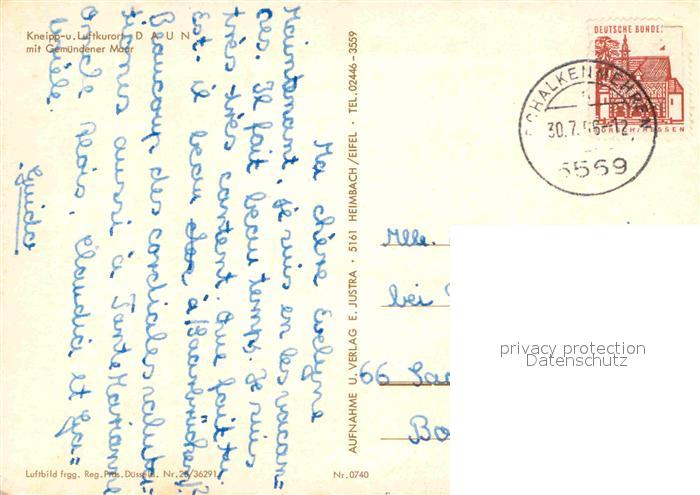 Kneipp-u. Luftkurort D A U N
mit Gemündener Maar
Ma chère Evelyne
Maintenant, je suis en les vacan=
ces. Il fait beau temps. Je suis
très très content. Que fait-tu.
Est-il beau à Saarbrücken?
Beaucoup des cordiales saluta=
tions aussi à Tante Marianne
Oncle Alois, Claudia et Ga=
briele.
Guido
AUFNAHME U. VERLAG E. JUSTRA · 5161 HEIMBACH/EIFEL · TEL. 02446-3559
DEUTSCHE BUNDES
SCHALKENMEHREN
30.7.66-12
5569
LORSCH/HESSEN
Mlle.
bei
66 Saa
Ba
privacy protection
Datenschutz
Luftbild frgg. Reg. Präs. Düsseld. Nr. 20/36291
Nr. 0740